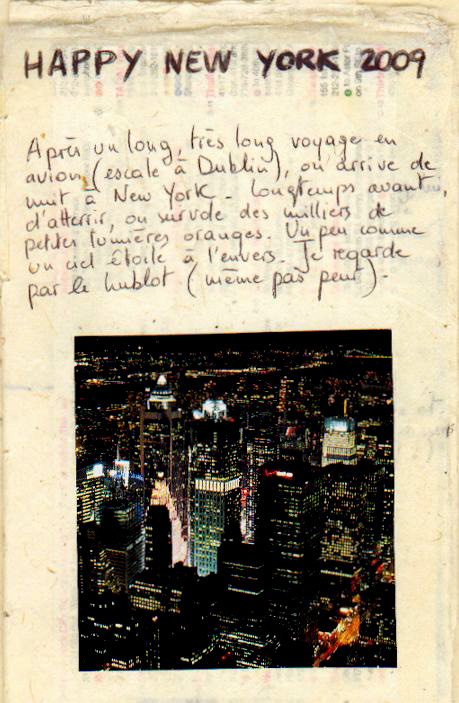 HAPPY NEW YORK 2009
Après un long, très long voyage en
avion (escale à Dublin), on arrive de
nuit à New York - Longtemps avant
d'atterrir, on survole des milliers de
petites lumières oranges. Un peu comme
un ciel étoilé à l'envers. Je regarde
par le hublot (même pas peur).